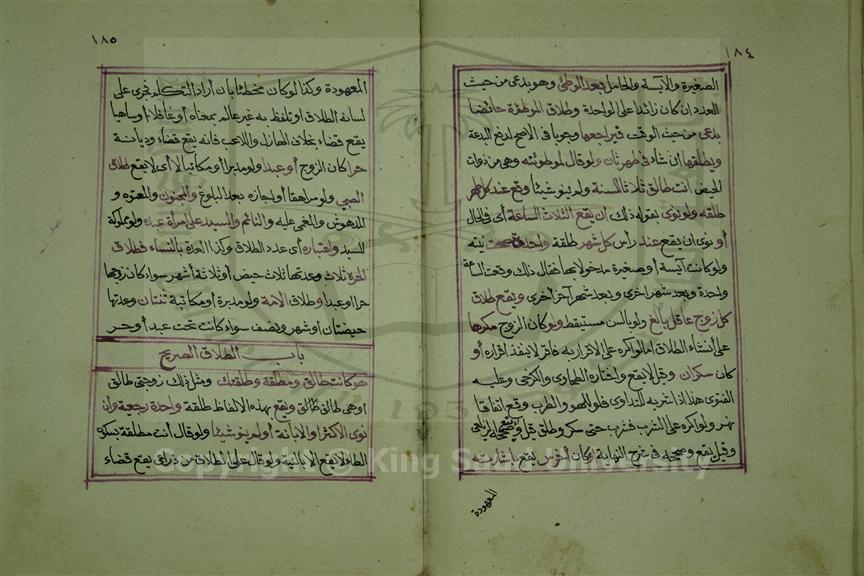 ١٨٤
الصغيرة والآيسة والحامل بعد الوطئ وهو بدعي من حيث
العدد ان كان زائدا على الواحدة وطلاق الموطؤة حائضا
بدعي من حيث الوقت فيراجعها وجوبا في الاصح لدفع البدعة
ويطلقها ان شاء في طهر ثان ولو قال لموطوئته وهي من ذوات
الحيض انت طالق ثلاثا للسنة ولم ينو شيئا وقع عند كل طهر
طلقه ولو نوى بقوله ذلك ان يقع الثلاث الساعة أى في الحال
أو نوى ان يقع عند رأس كل شهر طلقة واحدة صحت نيته
ولو كانت آيسة أو صغيرة مدخولا بها فقال ذلك وقعت للساعة
واحدة وبعد شهر اخرى وبعد شهر آخر أخرى ويقع طلاق
كل زوج عاقل بالغ ولو بالسن مستيقظ ولو كان الزوج مكرها
على أنشاء الطلاق اما لو اكره على الاقرار به فاقر لا ينفذ اقراره أو
كان سكران وقيل لا يقع واختاره الطحاوى والكرخى وعليه
الفتوى هذا اذا شربه للتداوى فلو للهو والطرب وقع اتفاقا
نهر ولو اكره على الشرب فشرب حتى سكر وطلق قيل لا يقع
وقيل يقع وصححه في شرح النهاية أو كان أخرس يقع باشارته
المعهودة
١٨٥
المعهودة وكذا لو كان مخطئا بأن أراد التكلم فجرى على
لسانه الطلاق او تلفظ به غير عالم بمعناه أو غافلا أو ساهيا
يقع قضاء بخلاف الهازل واللاعب فانه يقع قضاء وديانة
حرا كان الزوج أو عبدا ولو مدبرا أو مكاتبا لا أى لا يقع طلاق
الصبي ولو مراهقا أو اجازه بعد البلوغ والمجنون والمعتوه و
المدهوش والمغمى عليه والنائم والسيد على امرأة عبده ولو مملوكة
للسيد واعتباره أى عدد الطلاق وكذا العدة بالنساء فطلاق
الحرة ثلاث وعدتها ثلاث حيض أو ثلاثة أشهر سواء كان زوجها
حرا او عبدا وطلاق الامة ولو مدبرة أو مكاتبة ثنتان وعدتها
حيضتان أو شهر ونصف سواء كانت تحت عبد أو حر
باب الطلاق الصريح
هو كانت طالق ومطلقة وطلقتك ومثل ذلك زوجتى طالق
أو هى طالق طالق ويقع بهذه الالفاظ طلقة واحدة رجعية وان
نوى الاكثر او الابانة أو لم ينو شيئا ولو قال أنت مطلقة بسكون
الطاء لا يقع الا بالنية ولو قال على الطلاق من ذراعى يقع قضاء
Copyright © King Saud University